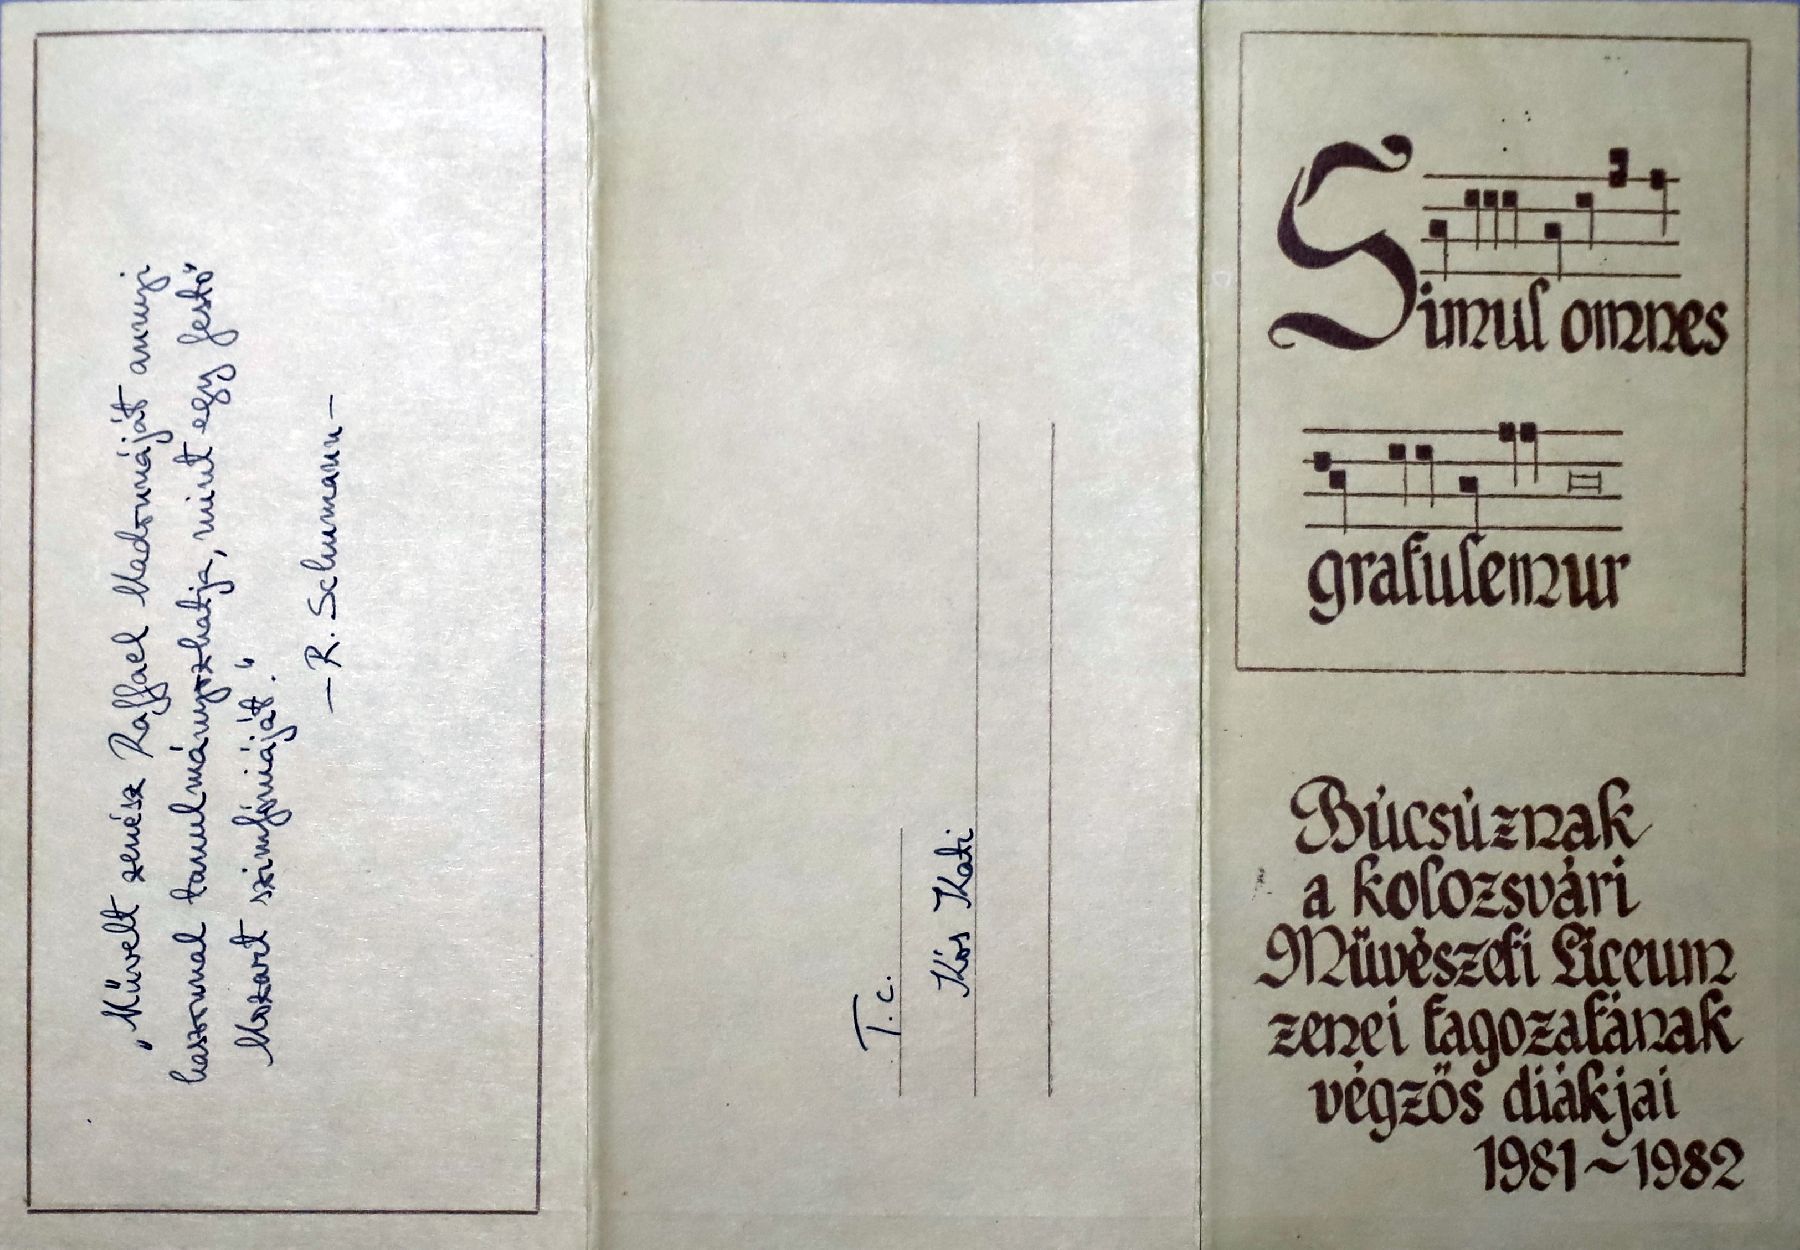 „Művelt zenész Raffael Madonnáját annyi
haszonnal tanulmányozhatja, mint egy festő"
Mozart szimfóniáját."
— R. Schumann —
T. c.
Kós Kati
Simul omnes
gratulemur
Búcsúznak
a kolozsvári
Művészeti Líceum
zenei tagozatának
végzős diákjai
1981~1982